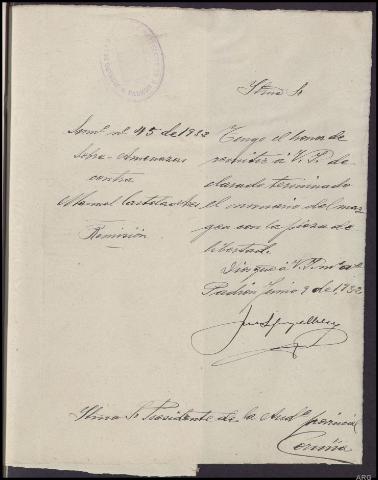 Iltmo Sr
Sumº nº 45 de 1932
sobre Amenazas
contra
Manuel
Remisión
Tengo el honor de
remitir á V. I. de-
clarado terminado
el sumario del mar-
gen con la pieza de
libertad.
Dios gue á V. I. ms as
Padrón Junio 9 de 1932
Iltmo Sr Presidente de la Audª provincial
Coruña
ARG